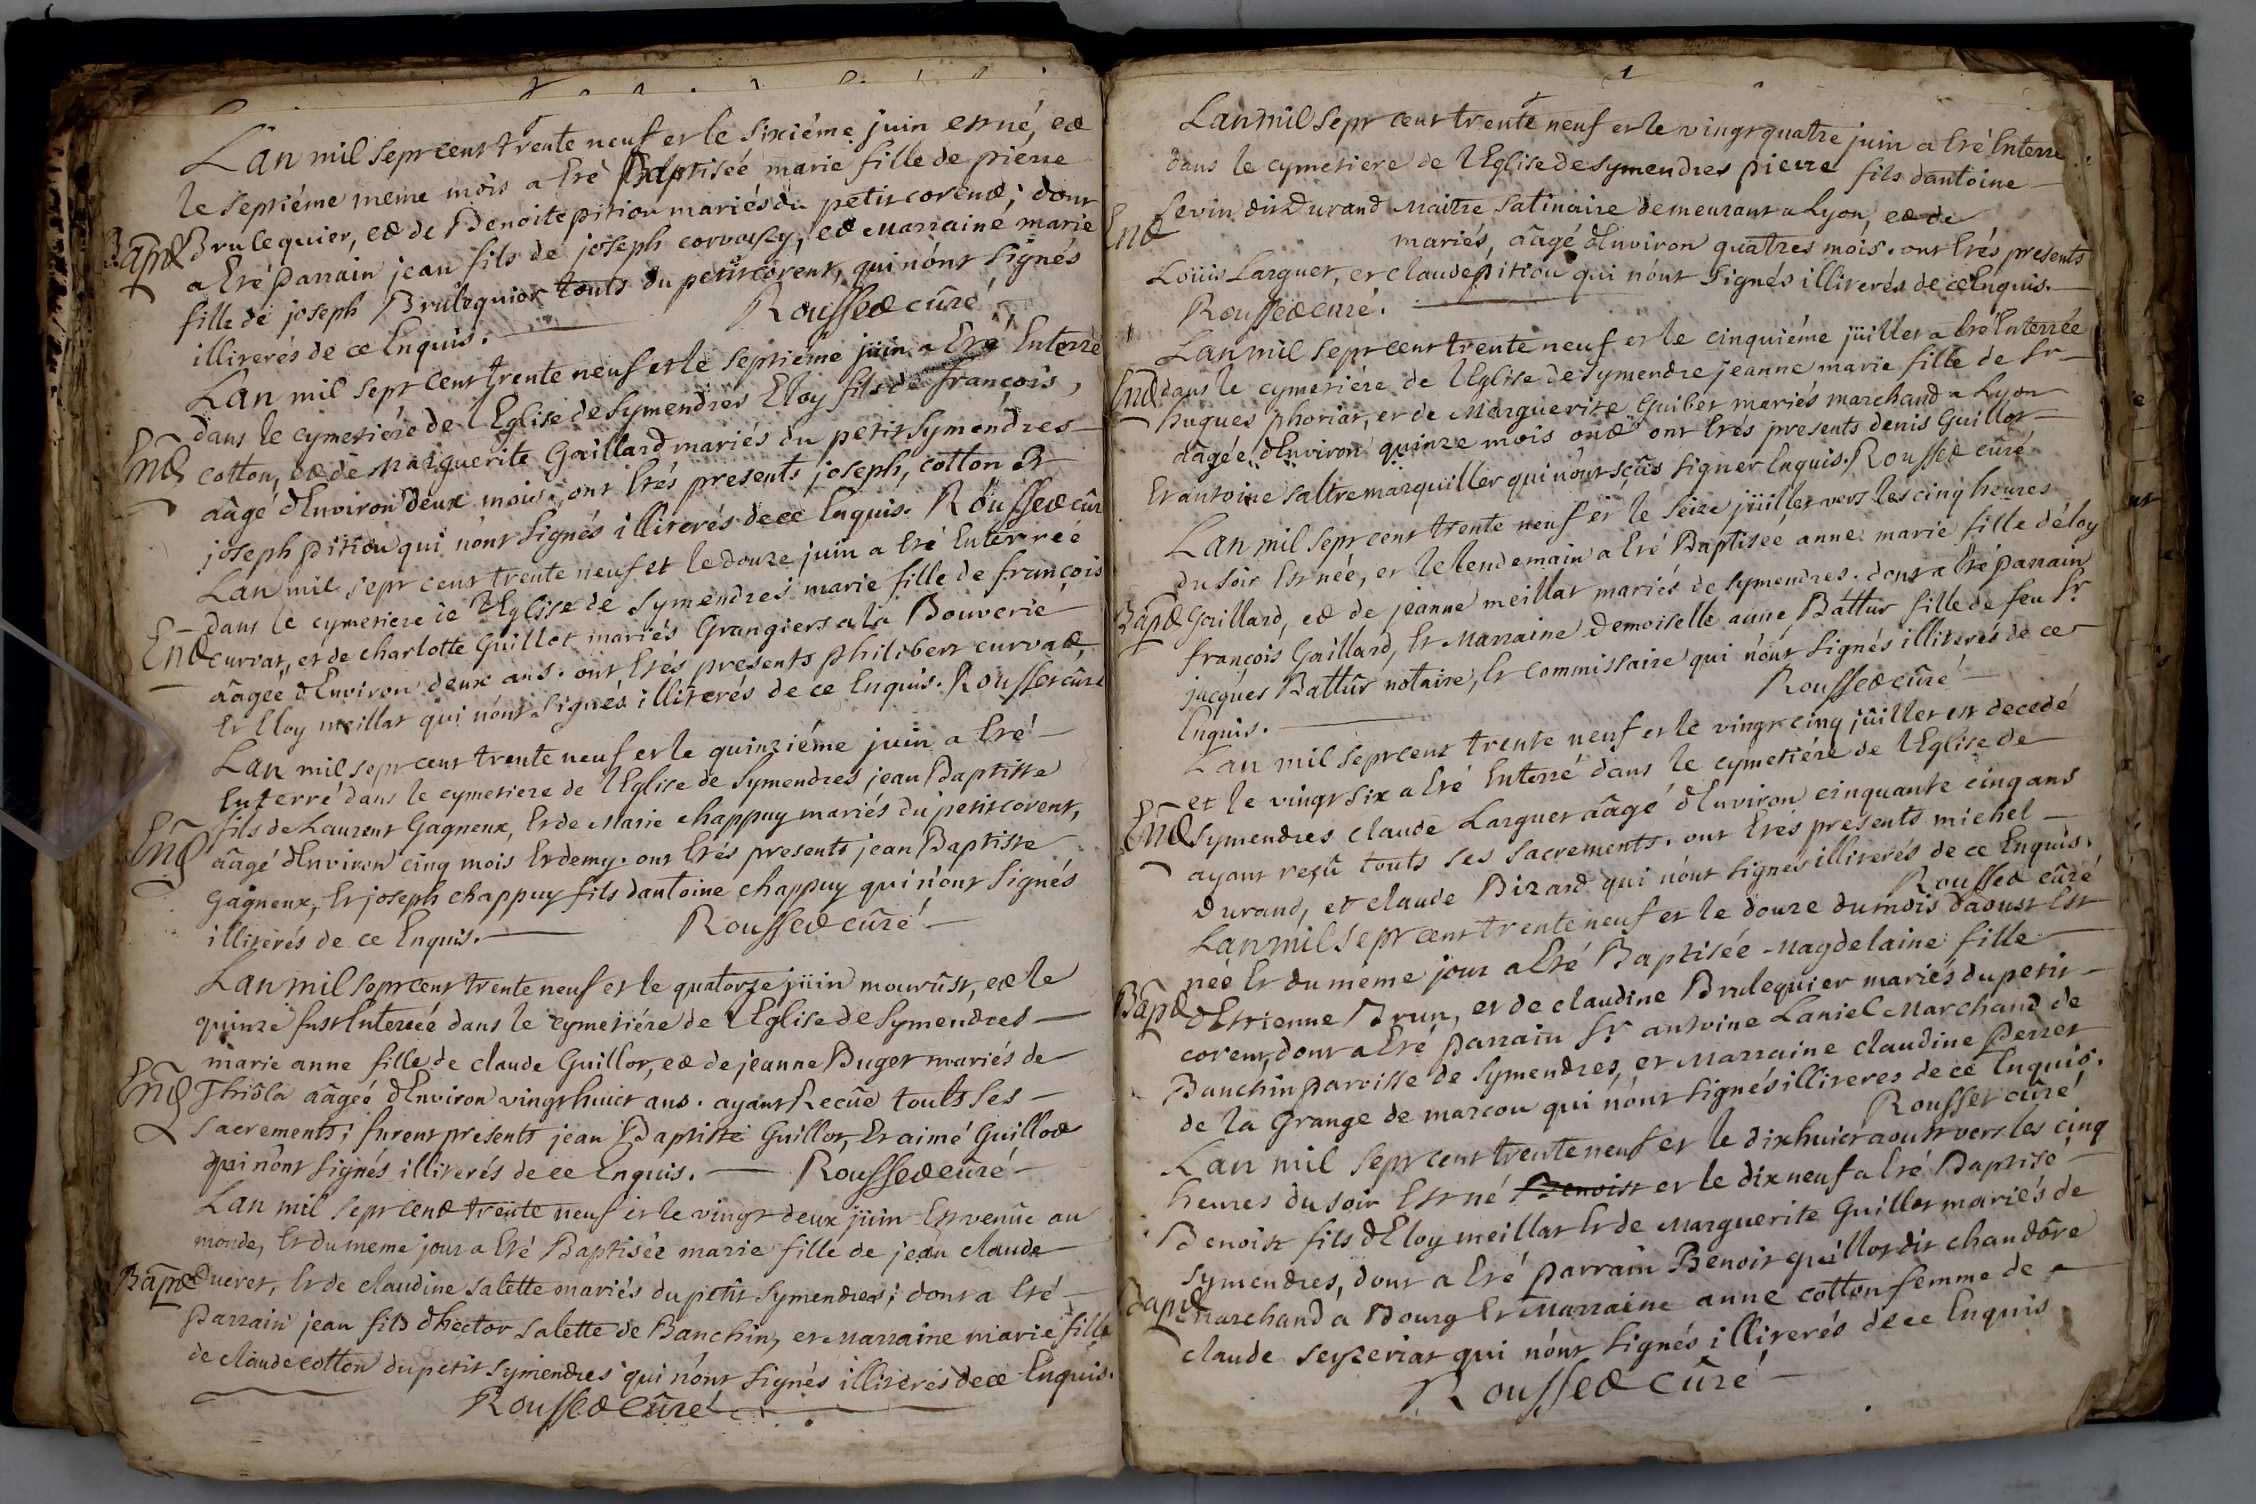 Lan mil sept cent trente neuf et le sixiéme juin est né, et
le septiéme meme mois a été Baptiséé marie fille de piérre
Bapt Brulequier, et de Benoite pition mariés du petit corent; dont
a été parrain jean fils de joseph corvaisy, et marraine marie
fille de joseph Brulequier touts du petit corent, qui nónt signés
illiterés de ce Enquis. Rousset cûré
Lan mil sept cent trente neuf et le septiéme juin a été Enterré
dans le cymetiére de l'Eglise de Symendres Eloy fils de françois
Ent cotton, et de Marguerite Gaillard mariés du petit Symendres
âagé d'Environ deux mois; ont étés presents joseph, cotton et
joseph pition qui nónt signés illiterés de ce Enquis. Rousset cûr
Lan mil sept cent trente neuf et le douze juin a été Enterréé
dans le cymetiere de l'Eglise de Symendres marie fille de françois
Ent curvat, et de charlotte Guillot mariés Grangiers a la Bouverie
âageé d'Environ deux ans. ont étés presents philibert curvat,
Et Eloy meillat qui nónt signés illiterés de ce Enquis. Rousset cûré
Lan mil sept cent trente neuf et le quinziéme juin a été
Enterré dans le cymetiere de l'Eglise de Symendres jean Baptiste
fils de Laurent Gagneux, Et de Marie chappuy mariés du petit corent,
Ent âagé d'Environ cinq mois Et demy. ont étés presents jean Baptiste
Gagneux, Et joseph chappuy fils dantoine chappuy qui nónt signés
illiterés de ce Enquis. Rousset cûré
Lan mil sept cent trente neuf et le quatorze jüin mourûst, et le
quinze fust Enterréé dans le cymetiére de l'Eglise de Symendres
marie anne fille de claude Guillot, et de jeanne Buget mariés de
Ent Thiôla âagéé d'Environ vingt huict ans. ayant Recûe touts ses
sacrements; furent presents jean Baptiste Guillot, Et aimé Guillot
qui nónt signés illiterés de ce Enquis. Rousset cûré
Lan mil sept cent trente neuf et le vingt deux jüin Est venûe au
monde, Et du meme jour a été Baptisée marie fille de jean claude
Bapt Queret, Et de claudine salette mariés du petit Symendres; dont a été
parrain jean fils d'hector salette de Banchin, et marraine marie fille
de claude cotton du petit symendres qui nónt signés illiterés de ce Enquis.
Rousset Cûré
Lan mil sept cent trente neuf et le vingt quatre juin a été Enterré
dans le cymetiere de l'Eglise de symendres pierre fils dantoine
Sevin dit Durand Maitre satinaire demeurant a Lyon, et de
Ent mariés, âagé d'Environ quatres mois. ont étés presents
Loüis Larguet, et claude pition qui nónt signés illiterés de ce Enquis.
Rousset curé.
Lan mil sept cent trente neuf et le cinquiéme jüillet a été Enterrée
Ent dans le cymetiére de l'Eglise de Symendre jeanne marie fille de Sr
hugues phoriat, et de Marguerite Guibet mariés marchand a Lyon
âagée d'Environ quinze mois ont étés presents denis Guillot
Et antoine saltre marquiller qui nónt sçûs signer Enquis. Rousset cûré
Lan mil sept cent trente neuf et le seize jüillet vers les cinq heures
du soir Est née, et le lendemain a été Baptiséé anne marie fille déloy
Bapt Gaillard, et de jeanne meillat mariés de symendres. dont a été parrain
françois Gaillard, Et Marraine Demoiselle anne Battur fille de feu Sr
jacques Battûr notaire, Et commissaire qui nónt signés illiterés de ce
Enquis. Rousset cûré
Lan mil sept cent trente neuf et le vingt cinq jüillet est decedé
et le vingt six a été Enterré dans le cymetiére de l'Eglise de
Ent Symendres claude Larguet âagé d'Environ cinquante cinq ans
ayant reçû touts ses sacrements. ont étés presents michel
Durand, et claude Bizard qui nónt signés illiterés de ce Enquis.
Rousset cûré
Lan mil sept cent trente neuf et le douze du mois daoust Est
neé Et du méme jour a été Baptisée Magdelaine fille
Bapt d'Etienne Brun, et de claudine Brulequier mariés du petit
corent, dont a été parrain Sr antoine Laniel Marchand de
Banchin parroisse de Symendres, et Marraine claudine perret
de la Grange de marcou qui nónt signés illiteres de ce Enquis.
Rousset cûré
Lan mil sept cent trente neuf et le dix huict aoust vers les cinq
heures du soir Est né Benoist et le dix neuf a été Baptisé
Benoist fils d'Eloy meillat Et de Marguerite Guillot mariés de
Symendres, dont a été parrain Benoit guillot dit chandôre
Bapt Marchand a Bourg Et Marraine anne cotton femme de
claude seyzeriat qui nónt signés illiterés de ce Enquis
Rousset Cûré